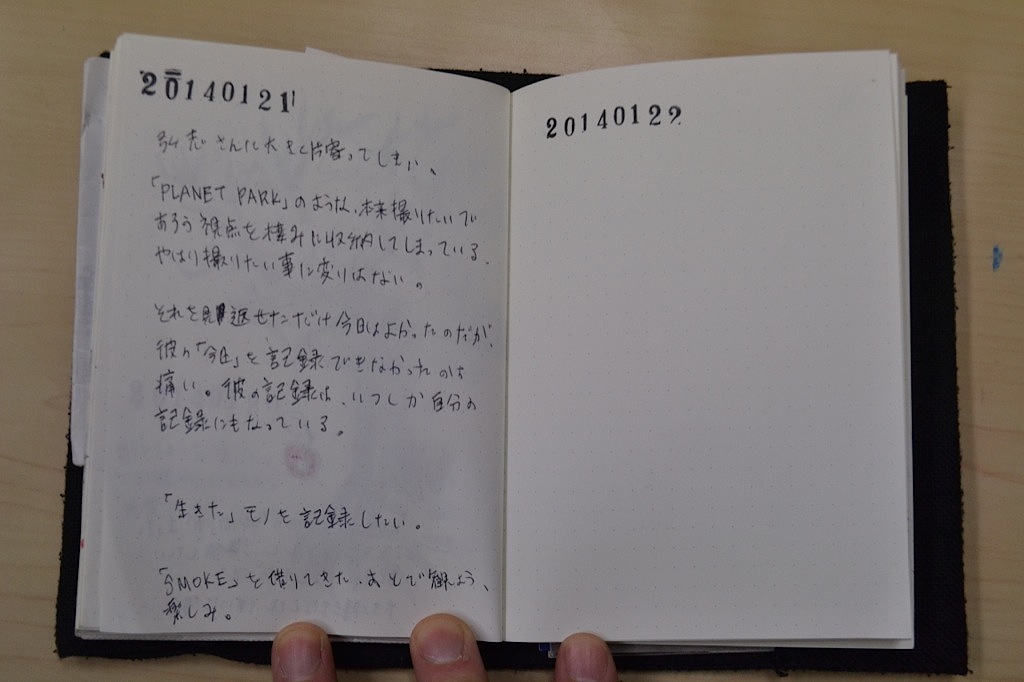 20140121
さんに大きく片寄ってしまい、
「PLANET PARK」のような、本来撮りたいで
あろう視点を棲みに収納してしまっている。
やはり撮りたい事に変りはない。
それを見返せただけ今日はよかったのだが、
彼の「今日」を記録できなかったのは
痛い。彼の記録は、いつしか自分の
記録にもなっている。
「生きた」モノを記録したい。
「SMOKE」を借りてきた。あとで観よう、
楽しみ。
20140122